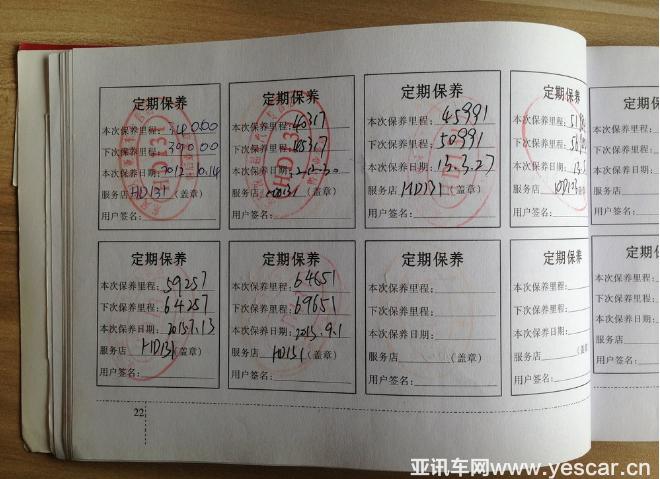 定期保养
本次保养里程：34000
下次保养里程：39000
本次保养日期：2012.10.14
服务店 HD131 （盖章）
用户签名：
定期保养
本次保养里程：40317
下次保养里程：45317
本次保养日期：
服务店 HD131 （盖章）
用户签名：
定期保养
本次保养里程：45991
下次保养里程：50991
本次保养日期：13.3.27
服务店 HD131 （盖章）
用户签名：
定期保养
本次保养里程：
下次保养里程：
本次保养日期：
服务店
用户签名：
定期保养
本次保养里程：
下次保养里程：
本次保养日期：
服务店
用户签名：
定期保养
本次保养里程：59257
下次保养里程：64257
本次保养日期：2015.7.13
服务店 HD131 （盖章）
用户签名：
定期保养
本次保养里程：64651
下次保养里程：69651
本次保养日期：2015.9.1
服务店 HD131 （盖章）
用户签名：
定期保养
本次保养里程：
下次保养里程：
本次保养日期：
服务店 （盖章）
用户签名：
定期保养
本次保养里程：
下次保养里程：
本次保养日期：
服务店
用户签名：
定期保养
本次保养里程：
下次保养里程：
本次保养日期：
服务店
用户签名：
22
亚讯车网www.yescar.cn